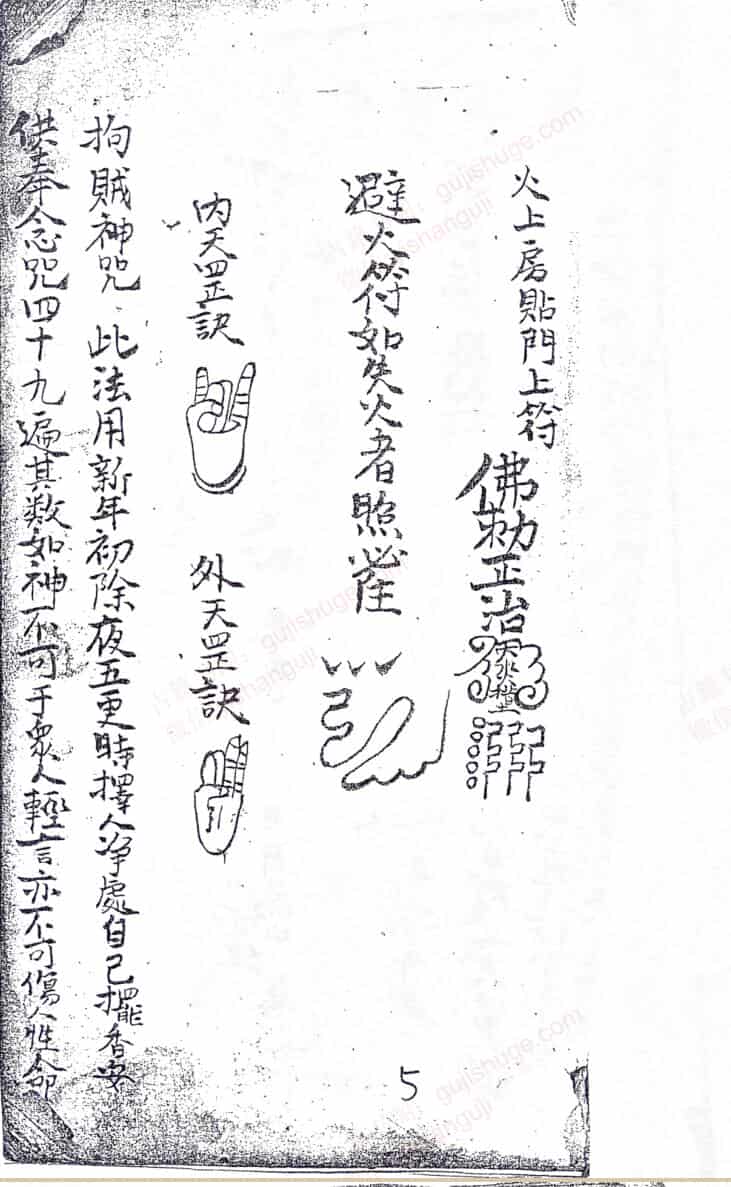 火上房貼門上符
佛勅正治
避火符如失火者照
內天罡訣
外天罡訣
拘賊神咒 此法用新年初除夜五更時擇人净處自己擺香安
供奉念咒四十九遍其数如神不可于衆人輕言亦不可傷人性命
5
gujishuge.com